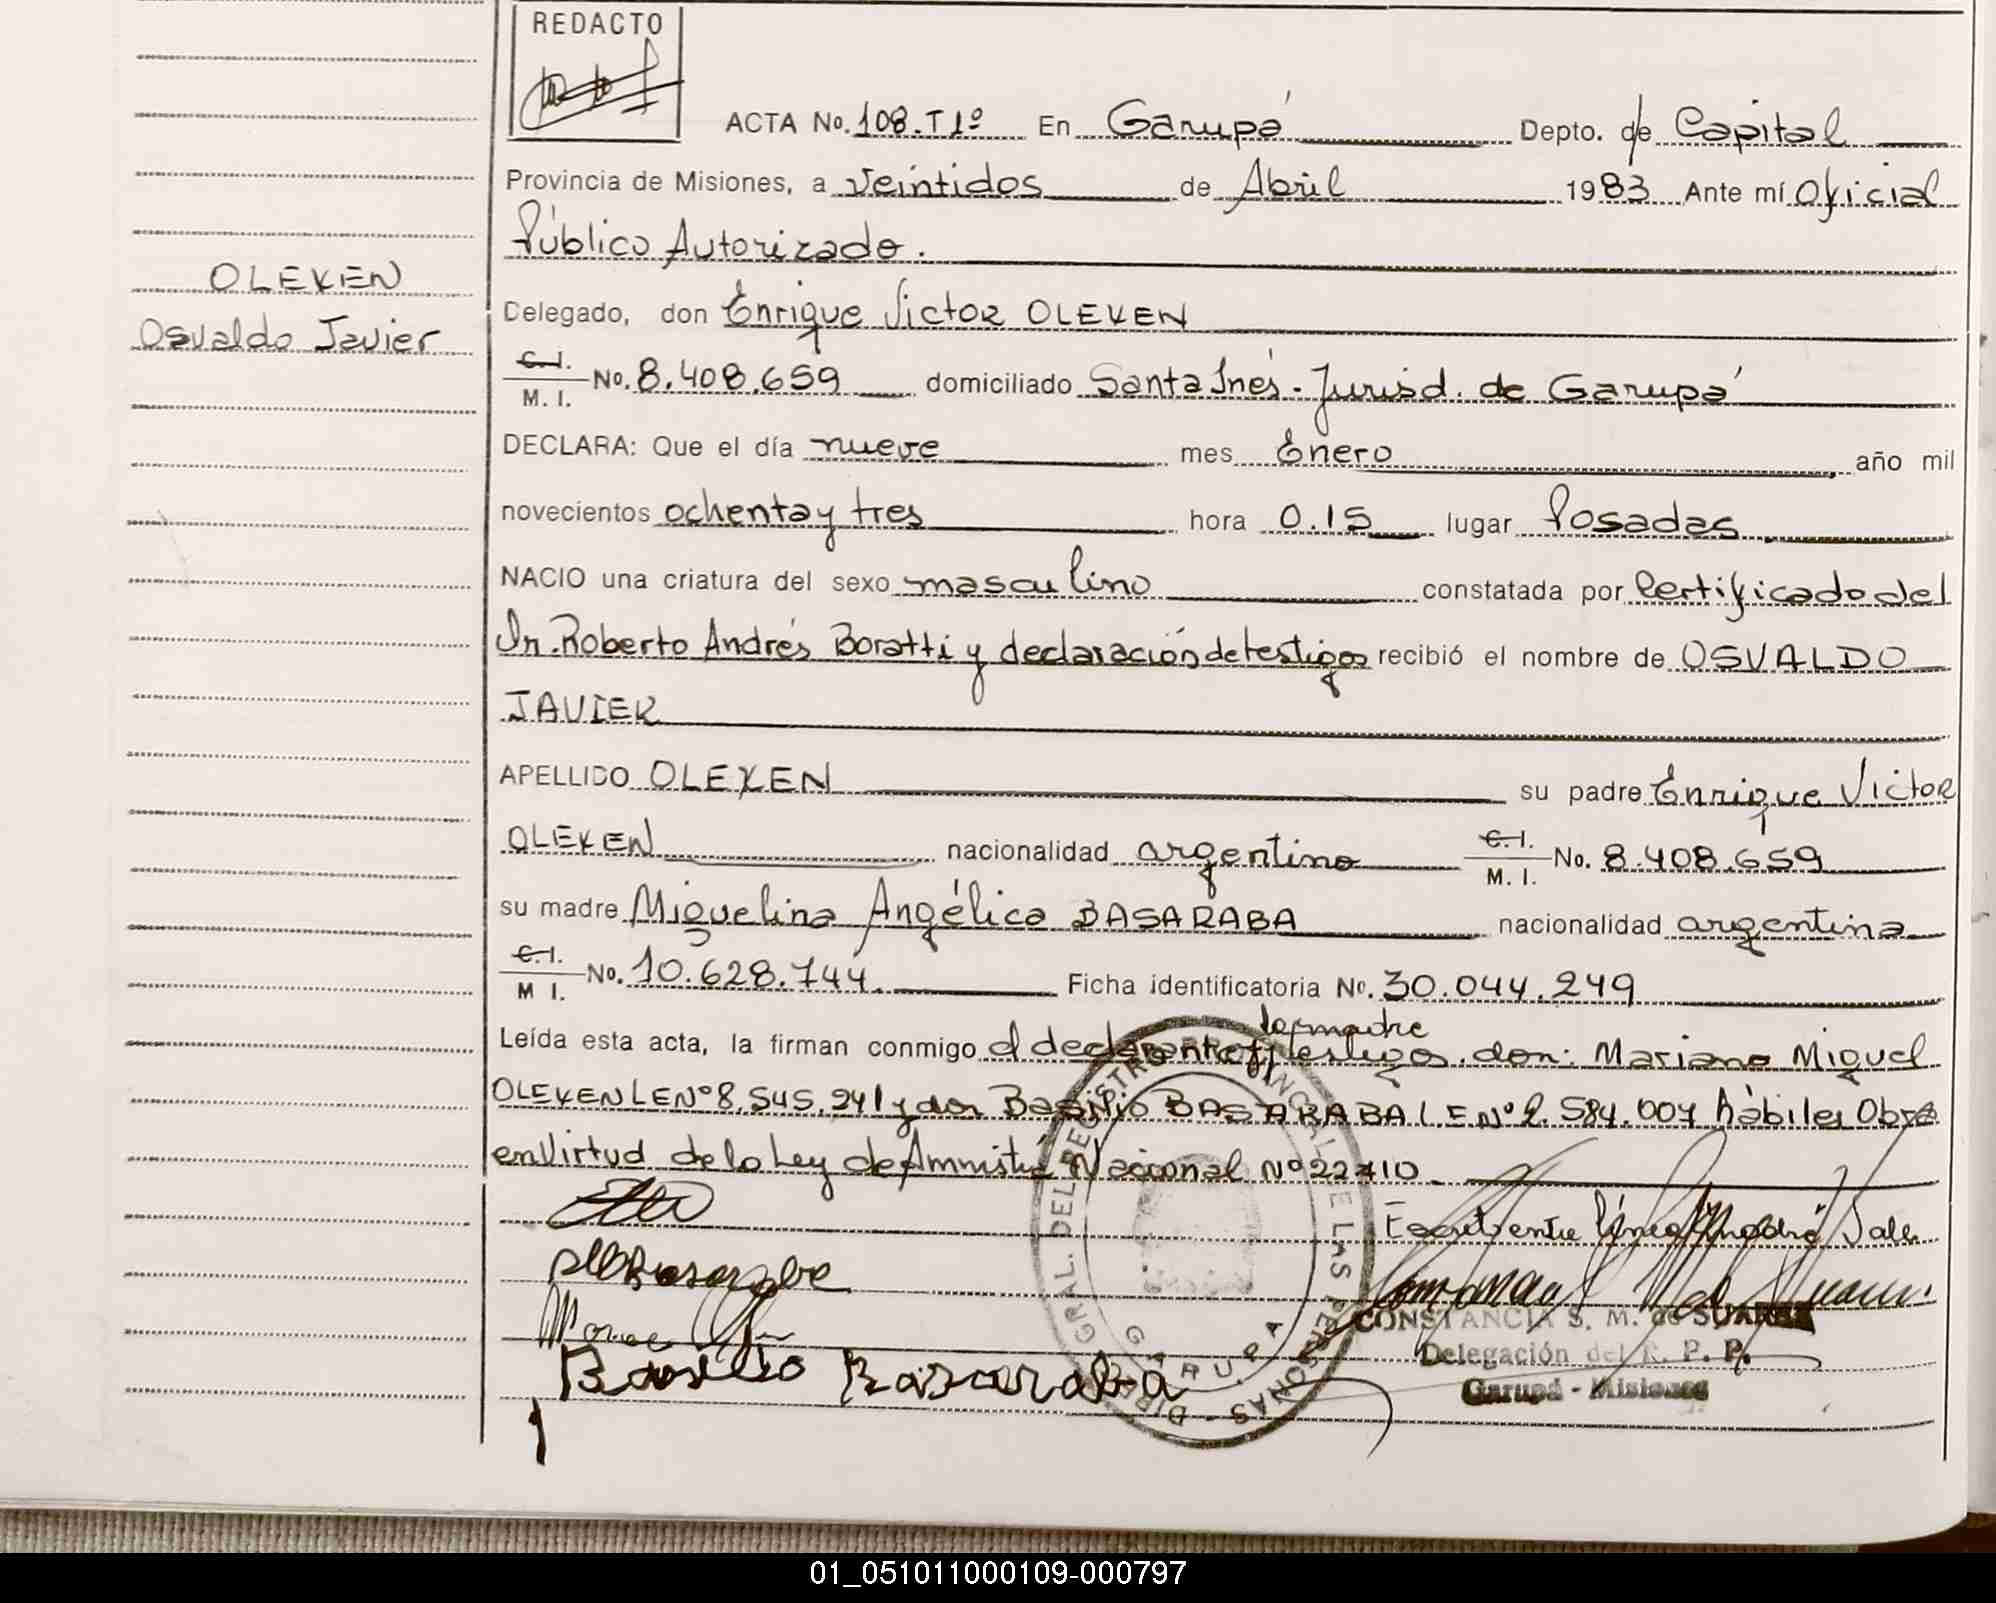 REDACTO
ACTA No. 108.T1º En Garupá Depto. de Capital
Provincia de Misiones, a veintidos de Abril 1983 Ante mí Oficial
Público Autorizado.
OLEKEN
Osvaldo Javier
Delegado, don Enrique Victor OLEKEN
C.I. M. I. No. 8.408.659 domiciliado Santa Inés - Jurisd. de Garupá
DECLARA: Que el día nueve mes Enero año mil
novecientos ochenta y tres hora 0.15 lugar Posadas
NACIO una criatura del sexo masculino constatada por Certificado del
Dr. Roberto Andrés Boratti y declaración de testigos recibió el nombre de OSVALDO
JAVIER
APELLIDO OLEKEN su padre Enrique Victor
OLEKEN nacionalidad argentino C.I. M. I. No. 8.408.659
su madre Miguelina Angélica BASARABA nacionalidad argentina
C.I. M I. No. 10.628.744. Ficha identificatoria No. 30.044.249
la madre
Leída esta acta, la firman conmigo el declarante y testigos. don: Mariano Miguel
OLEKEN LE Nº 8.545.941 y don Basilio BASARABA LE Nº 2.584.007 hábiles Obra
en Virtud de la Ley de Amnistía Nacional Nº 22410.
Escrit entre línea Vale
Basaraba
Basilio Basaraba
CONSTANCIA S. M. de SUAREZ
Delegación del R. P. P.
Garupá - Misiones
DIREC. GRAL. DEL REGISTRO PROVINCIAL DE LAS PERSONAS -
GARUPA
01_051011000109-000797